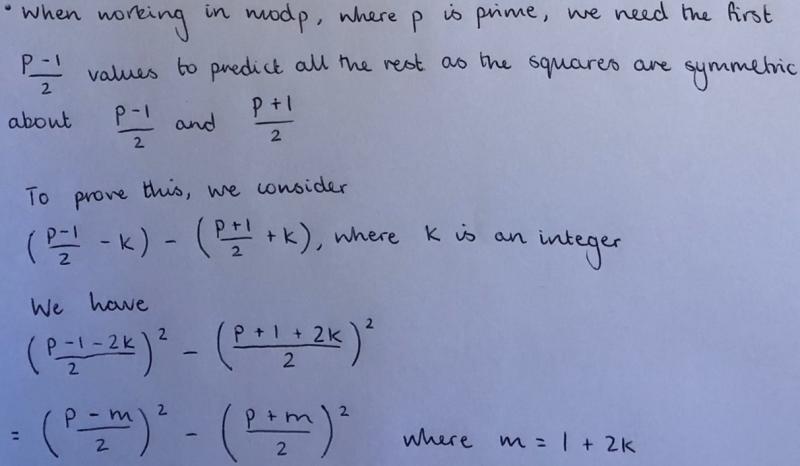 • When working in mod p, where p is prime, we need the first
(p-1)/2 values to predict all the rest as the squares are symmetric
about (p-1)/2 and (p+1)/2
To prove this, we consider
((p-1)/2 - k) - ((p+1)/2 + k), where k is an integer
We have
((p-1-2k)/2)² - ((p+1+2k)/2)²
= ((p-m)/2)² - ((p+m)/2)² where m = 1 + 2k